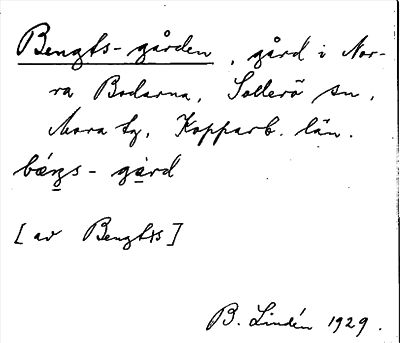 Bengts-gården, gård i Nor-
ra Bodarna, Sollerö sn,
Mora tg, Kopparb. län.
bą́ŋs - gård
[av Bengtss]
B. Lindén 1929.